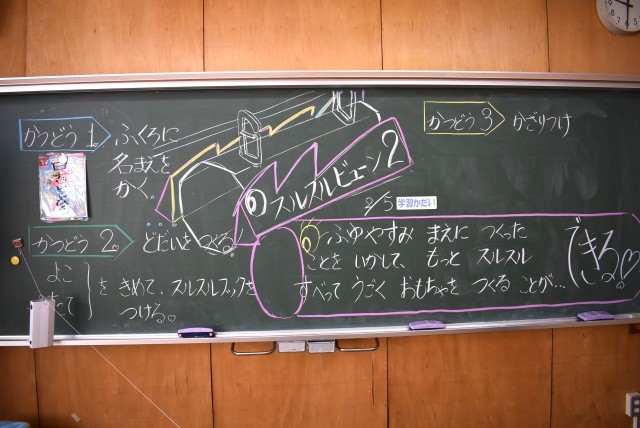 かつどう1
ふくろに
名まえを
かく。
かつどう2。
どだいをつくる
よこ
たて
を きめて、スルスルフックを
つける。
⑥スルスルビューン2
2/5 学習かだい
かつどう3 かざりつけ
ふゆやすみ まえに つくった
ことを いかして、もっと スルスル
すべって うごく おもちゃを つくる ことが…
できる。